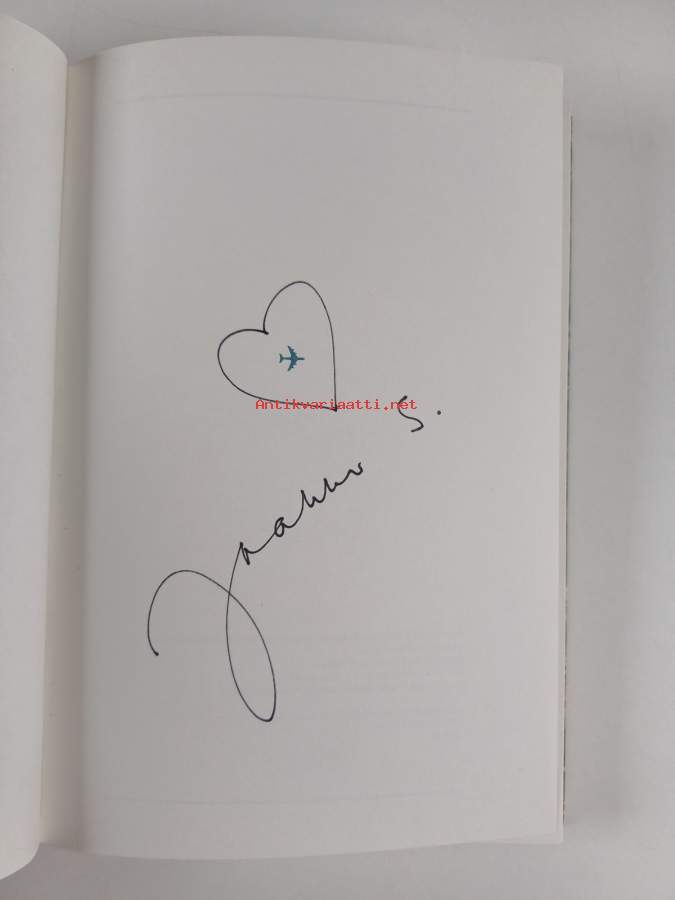 Antikvariaatti.net
Jaakko S.